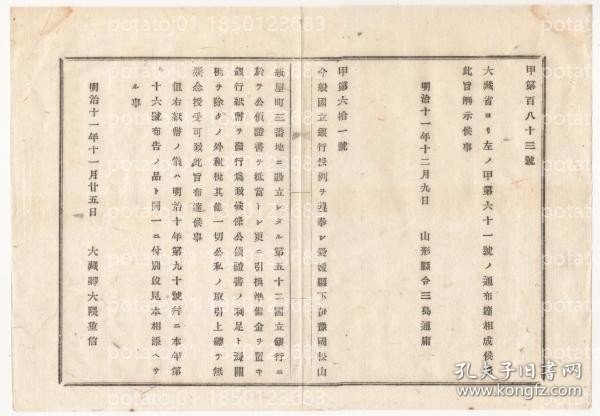 甲第百八十三號
大藏省ヨリ左ノ甲第六十一號ノ通布達相成候
此旨揭示候事
明治十一年十二月九日 山形縣令三島通庸
甲第六拾一號
今般國立銀行條例ヲ遵奉シ愛媛縣下伊豫國松山
紙屋町三番地ニ設立シタル第五十二國立銀行ニ
於テ公債證書ヲ抵當トシ更ニ引換準備金ヲ置キ
銀行紙幣ヲ發行爲致候條公債證書ノ利足ト海關
稅ヲ除クノ外租稅其他一切公私ノ取引上總テ無
疑念授受可致此旨布達候事
但右紙幣ノ儀ハ明治十年第九十號幷ニ本年第
十六號布告ノ品ト同一ニ付別段見本相添ヘサ
ル事
明治十一年十一月廿五日 大藏卿大隈重信
potatoj01 1850123683
孔夫子旧书网